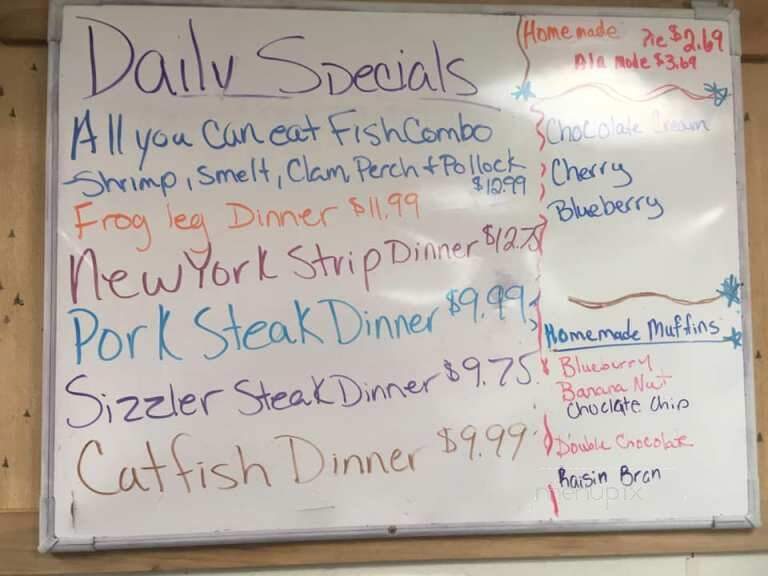 Daily Specials
All you can eat Fish Combo
Shrimp, Smelt, Clam, Perch + Pollock
$12.99
Frog leg Dinner $11.99
New York Strip Dinner $12.75
Pork Steak Dinner $9.99
Sizzler Steak Dinner $9.75
Catfish Dinner $9.99
Homemade Pie $2.69
Ala mode $3.69
Chocolate Cream
Cherry
Blueberry
Homemade Muffins
Blueburry
Banana Nut
Choclate Chip
Double Chocolate
Raisin Bran
menupix